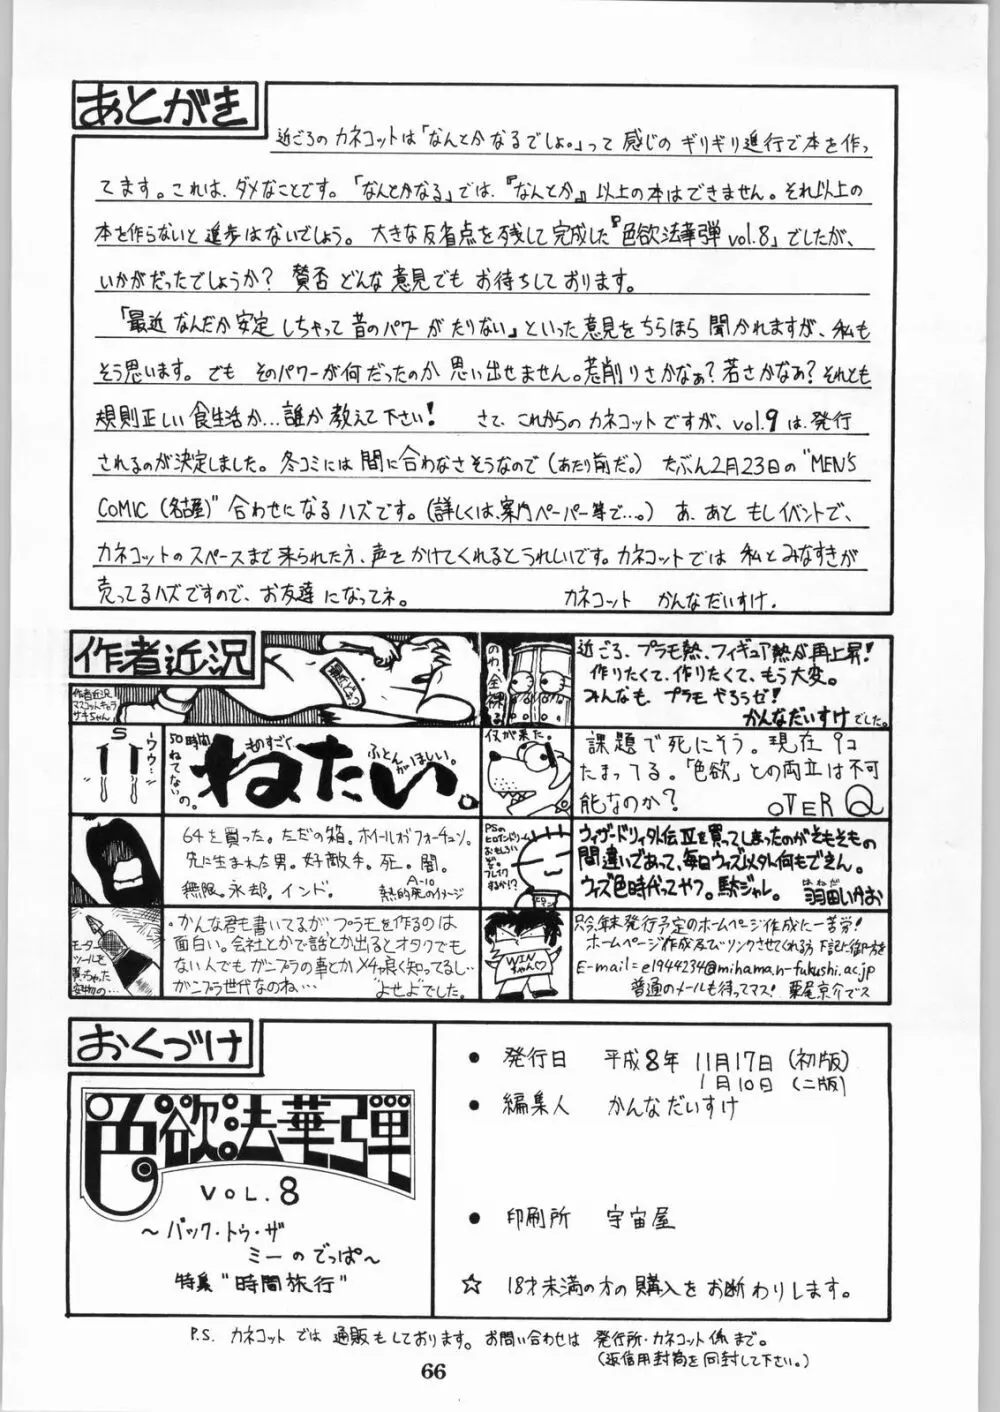 あとがき
近ごろのカネコットは「なんとかなるでしょ。」って感じのギリギリ進行で本を作っ
てます。これは、ダメなことです。「なんとかなる」では、『なんとか』以上の本はできません。それ以上の
本を作らないと進歩はないでしょう。大きな反省点を残して完成した『色欲法華弾vol.8』でしたが、
いかがだったでしょうか?賛否どんな意見でもお待ちしております。
「最近なんだか安定しちゃって昔のパワーがたりない」といった意見をちらほら聞かれますが、私も
そう思います。でもそのパワーが何だったのか思い出せません。荒削りさかなぁ?若さかなぁ?それとも
規則正しい食生活か…誰か教えて下さい! さて、これからのカネコットですが、vol.9は、発行
されるのが決定しました。冬コミには間に合わなさそうなので(あたり前だ。)たぶん2月23日の"MEN'S
COMIC(名古屋)"合わせになるハズです。(詳しくは、案内ペーパー等で…。)あ、あともしイベントで、
カネコットのスペースまで来られた方、声をかけてくれるとうれしいです。カネコットでは私とみなすきが
売ってるハズですので、お友達になってネ。 カネコット かんなだいすけ.
作者近況
作者近況
マスコットキャラ
サキちゃん
のわ、全裸る。
近ごろ、プラモ熱、フィギュア熱が再上昇!
作りたくて、作りたくて、もう大変。
みんなも、プラモやろうぜ!
かんなだいすけでした。
ーウゥ…
50時間ねてないの。
ものすごく
ねたい。
ふとんがほしい。
何が来た。
課題で死にそう。現在9コ
たまってる。「色欲」との両立は不可
能なのか?
OVER Q
64を買った。ただの箱。ホイールオブフォーチュン。
先に生まれた男。好敵手。死。闇。
無限。永却。インド。
A-10
熱的死のイメージ
PSの
ヒロインドリーム
おもしろい
ぞ。
ブレイク
するか!?
ウィザードリィ外伝Ⅳを買ってしまったのがそもそもの
間違いであって、毎日ウィズ以外何もできん。
ウィズ色時代ってやつ。駄ジャレ。
羽田いかお
モーター
ツールを
買っちゃった
姿物の…
・かんな君も書いてるが、プラモを作るのは
面白い。会社とかで話とか出るとオタクでも
ない人でもガンプラの事とかメチャ良く知ってるし…
ガンプラ世代なのね… "よせよ"でした。
WIN
ちゃん♡
只今年末発行予定のホームページ作成に一苦労!
ホームページ作成及びリンクさせてくれる方下記に御一方を
E-mail=e1944234@mihama.n-fukushi.ac.jp
普通のメールも待ってマス! 栗尾京介でス
おくづけ
色欲法華弾
VOL.8
～バック・トゥ・ザ
ミーのでっぱ～
特集"時間旅行"
● 発行日 平成8年 11月17日(初版)
1月10日(二版)
● 編集人 かんなだいすけ
● 印刷所 宇宙屋
☆ 18才未満の方の購入をお断わりします。
P.S. カネコットでは通販もしております。お問い合わせは発行所・カネコット係まで。
(返信用封筒を同封して下さい。)
66